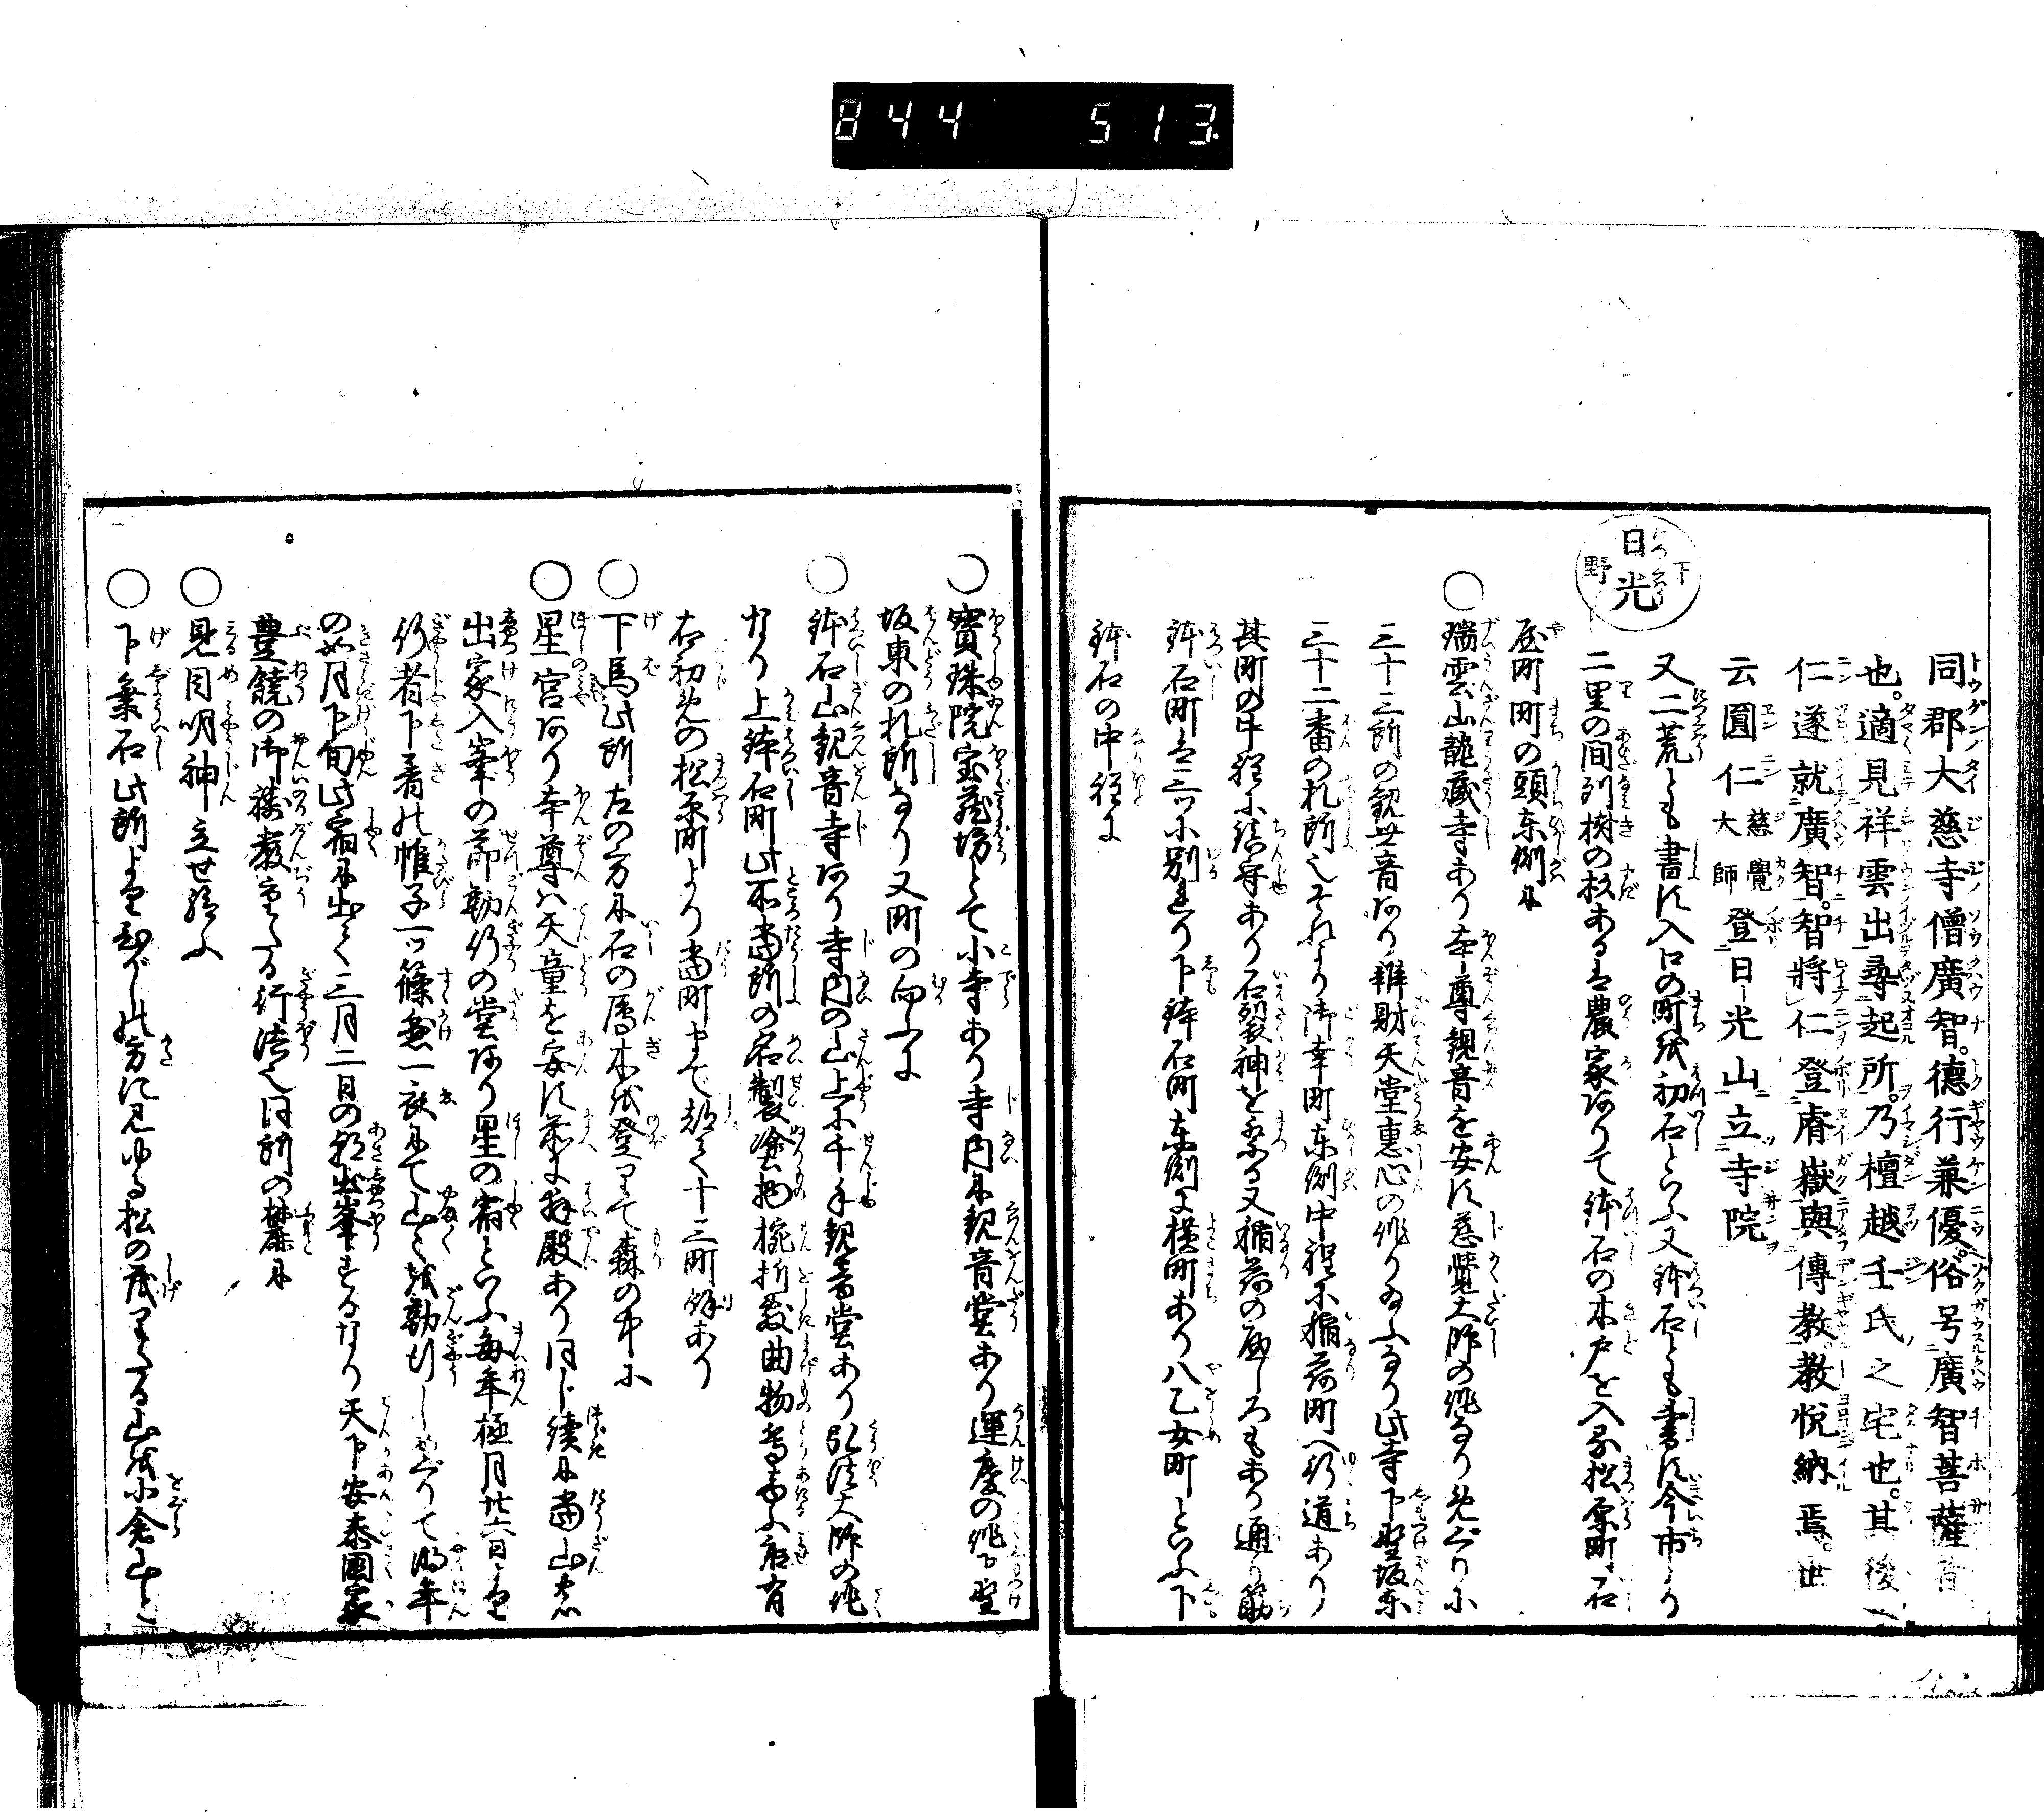 844 513
同郡大慈寺僧廣智。德行兼優。俗号廣智菩薩者
也。適見祥雲出尋起所。乃檀越壬氏之宅也。其後
仁遂就廣智。智將仁登睿嶽與傳教。教悦納焉。世
云圓仁慈覺大師登日光山立寺院
下野日光
又二荒とも書す入口の町を初石といふ又鉢石とも書す今市より
二里の間列樹の杉あるは農家ありて鉢石の木戸を入る松原町石
屋町町の頭東側に
○瑞雲山龍蔵寺あり本尊観音を安す慈覚大師の作なりめぐりに
三十三所の観世音あり辨財天堂恵心の作りゐふなり此寺下野坂東
三十二番の札所也それより御幸町東側中程に稲荷町へ行道あり
其町の中程に鎮守あり石裂神を祭る又稲荷の やしろもあり通り筋
鉢石町は三ツに別れり下鉢石町東側に横町あり八乙女町といふ下
鉢石の中程に
○寶珠院宝蔵坊とて小寺あり寺内に観音堂あり運慶の作下野
坂東の札所なり又町の向ふに
○鉢石山観音寺あり寺内の山上に千手観音堂あり弘法大師の作
なり上鉢石町此所當所の名製塗物椀折敷曲物等商ふ店有
右初めの松原町より當町中まで都て十三町餘あり
○下馬此所左の方に石の雁木を登りて森の中に
○星宮あり本尊ハ天童を安す前に拝殿あり同じ續に當山え
出家入峯の節勤行の堂あり星の宿といふ毎年極月廿六日に
行者下着の帷子一ツ篠懸一衣にて山々を勤行しめぐりて明年
の如月下旬此宿に出て三月二日の朝出峯するなり天下安泰國家
豊饒の御 教 重たる行法也同所の麓に
○見目明神立せ給ふ
○下乗石此所より むかし の方に見ゆる松の茂りたる山を小倉山と